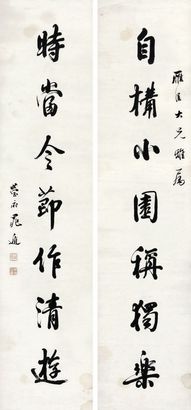 雁臣大兄雅属
自構小園稱獨樂
時當令節作清遊